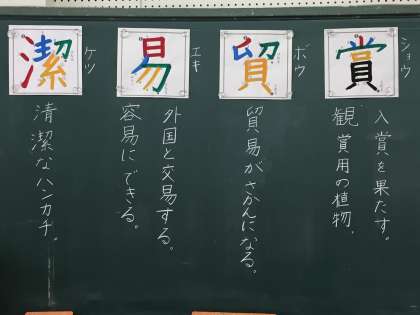 賞
ショウ
入賞を果たす。
観賞用の植物、
貿
ボウ
貿易がさかんになる。
易
エキ
外国と交易する。
容易にできる。
潔
ケツ
清潔なハンカチ。